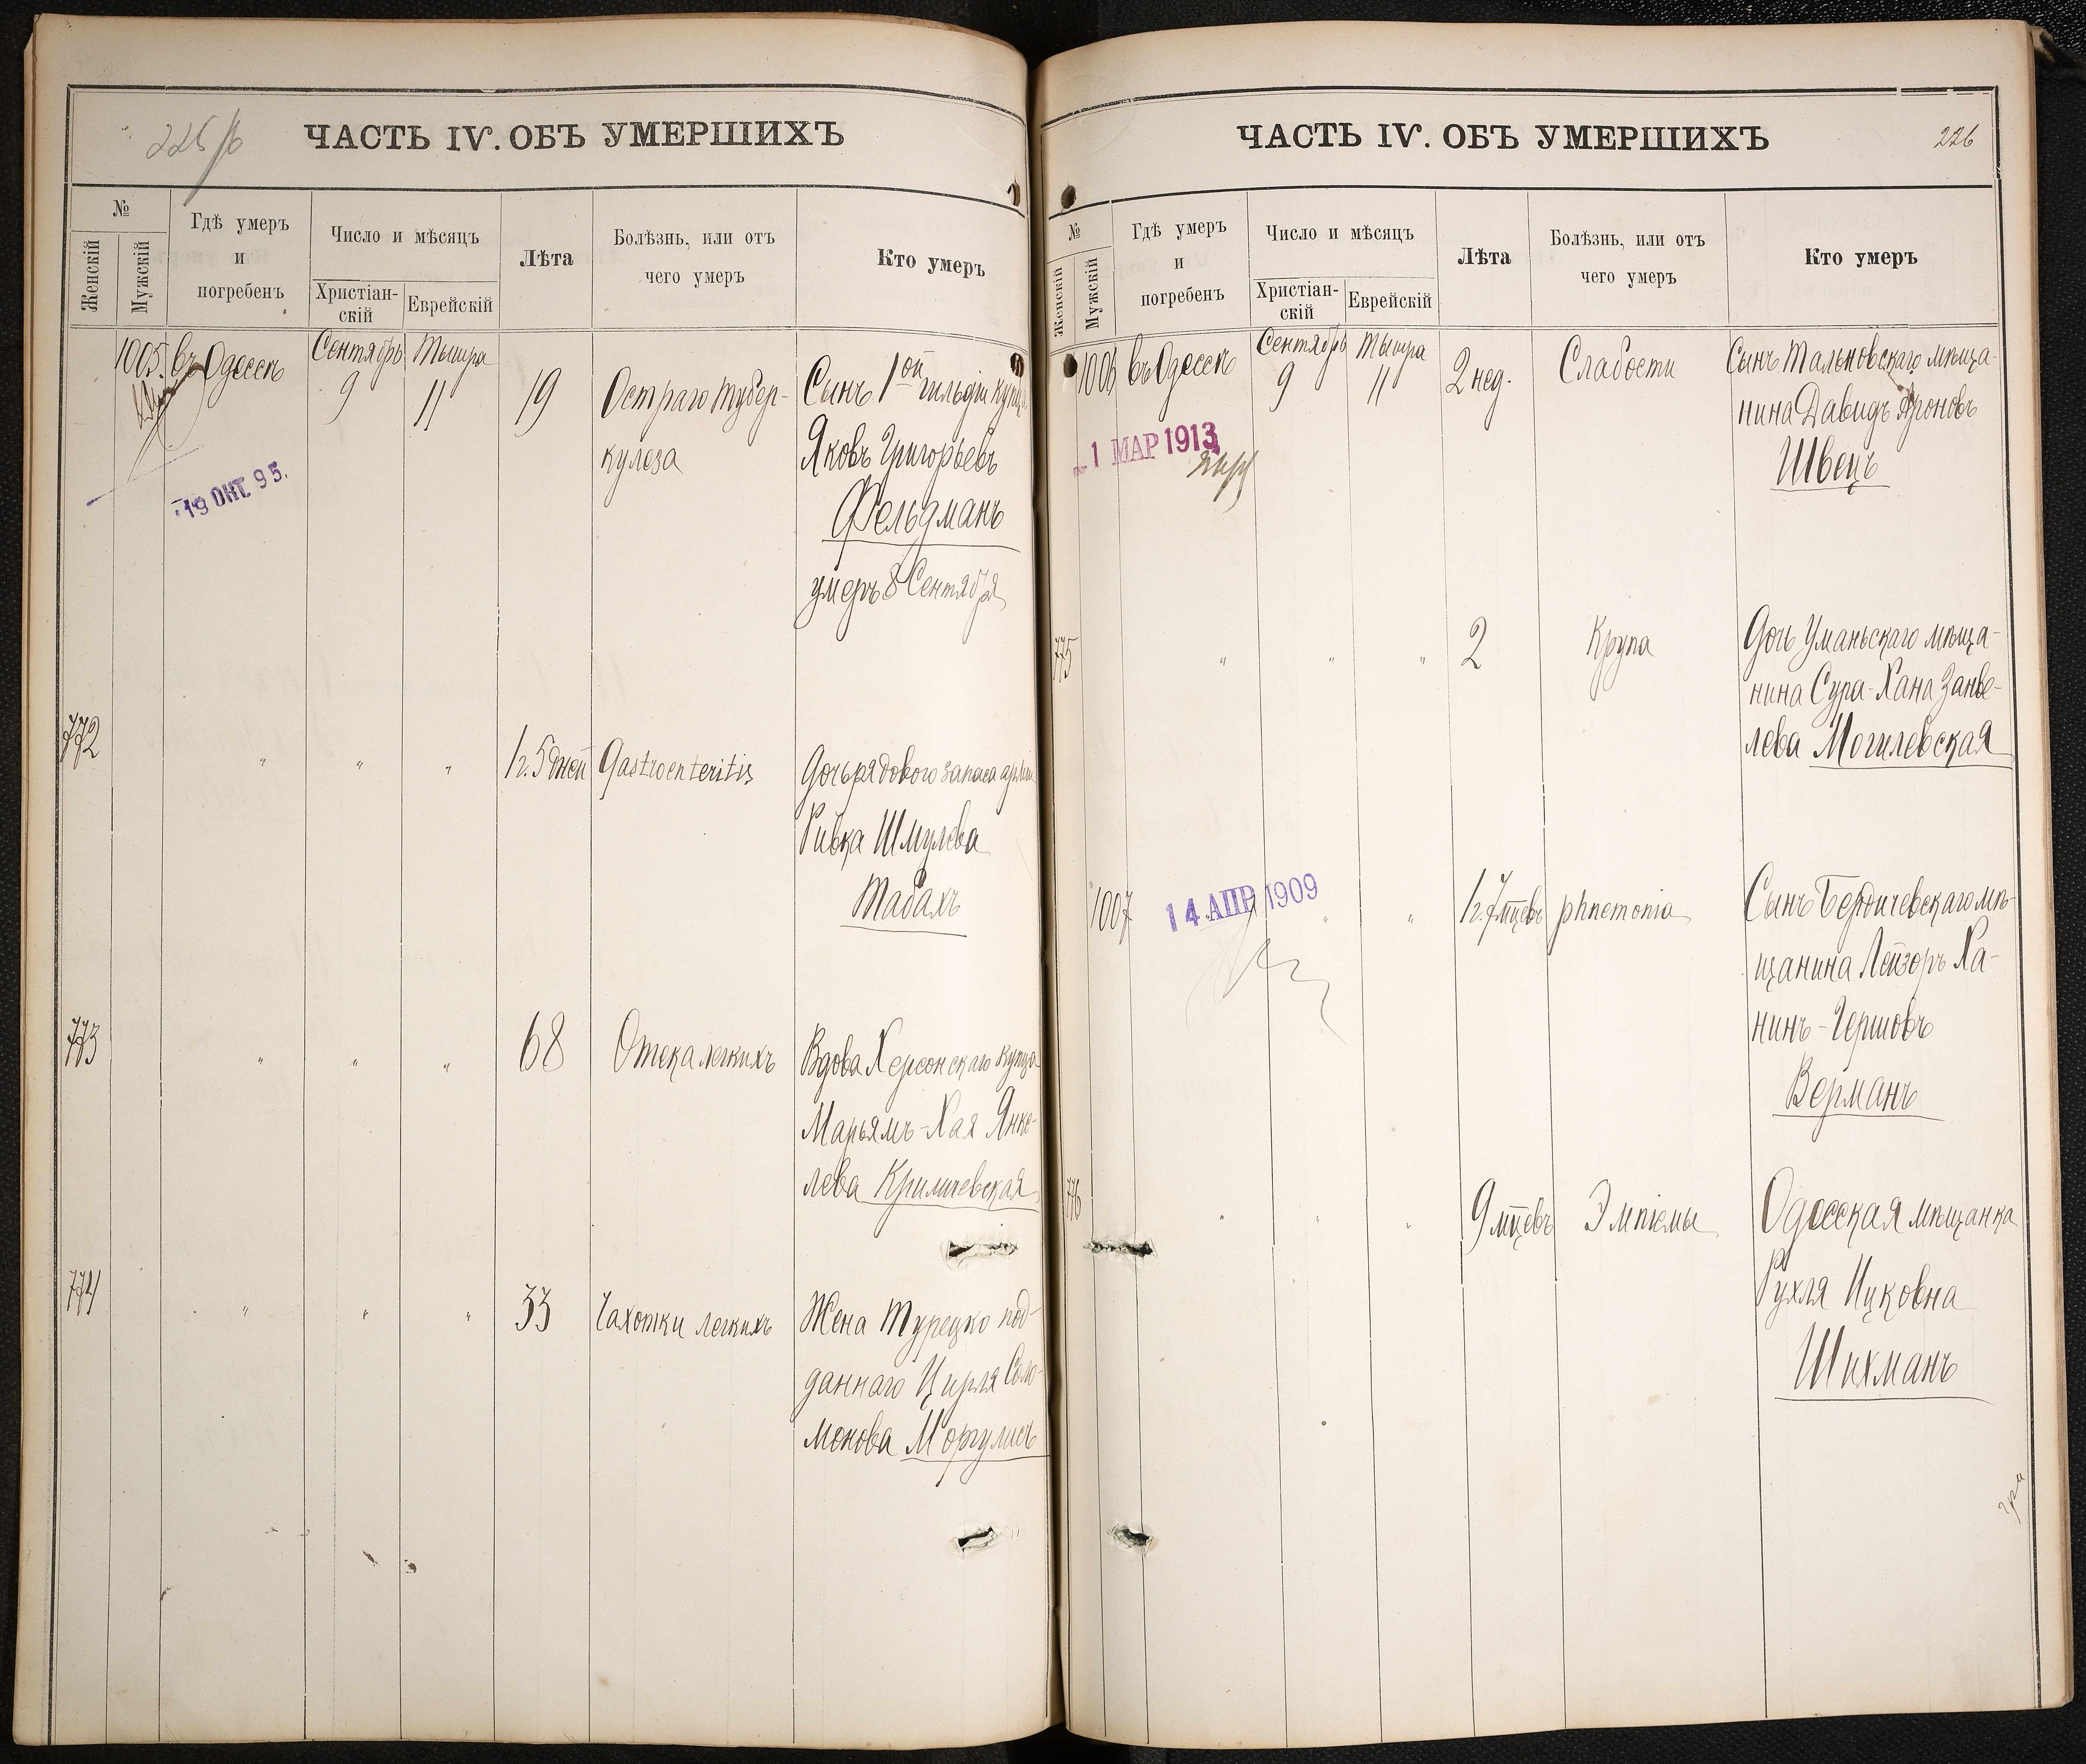 225/б
ЧАСТЬ IV. ОБЪ УМЕРШИХЪ
№
Женскій
Мужскій
Гдѣ умеръ
и
погребенъ
Число и мѣсяцъ
Христіан-
скій
Еврейскій
Лѣта
Болѣзнь, или отъ
чего умеръ
Кто умеръ
1005. въ Одессѣ Сентябрь 9 Тышра 11 19 Остраго тубер-
кулеза
Сынъ 1ой гильдіи купца
Яковъ Григорьевъ
Фельдманъ
умеръ 8 Сентября
19 ОКТ. 95.
772 " " " 1г. 5 дней Gastroenteritis
Дочь рядового запаса арміи
Ривка Шмулева
Табахъ
773 " " " 68 Отека легкихъ
Вдова Херсонскаго купца
Марьямъ-Хая Янке-
лева Криличевская
774 " " " 33 Чахотки легкихъ
Жена Турецко под-
даннаго Цирля Соло-
монова Моргулисъ
ЧАСТЬ IV. ОБЪ УМЕРШИХЪ
226
№
Женскій
Мужскій
Гдѣ умеръ
и
погребенъ
Число и мѣсяцъ
Христіан-
скій
Еврейскій
Лѣта
Болѣзнь, или отъ
чего умеръ
Кто умеръ
1006 въ Одессѣ Сентябрь 9 Тышра 11 2 нед. Слабости
Сынъ Тальновскаго мѣща-
нина Давидъ Ароновъ
Швецъ
1 МАР 1913
775 " " " 2 Крупа
Дочь Уманьскаго мѣща-
нина Сура-Хана Занве-
лева Могилевская
1007 " " 1г. 7 мцевъ phnemonia
14 АПР 1909
Сынъ Бердичевскаго мѣ-
щанина Лейзоръ Ха-
нинъ-Гершовъ
Верманъ
776 " " " 9 мцевъ Эмпіемы
Одесская мѣщанка
Рухля Ицковна
Шихманъ